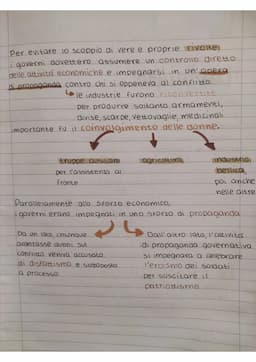 Per evitare lo scoppio di vere e proprie rivolte,
i governi dovettero assumere un controllo diretto
delle attività economiche e impegnarsi in un'opera
di propaganda contro chi si opponeva al conflitto.
le industrie furono riconvertite
per produrre soltanto armamenti,
divise, scarpe, vettovaglie, medicinali
importante fu il coinvolgimento delle donne.
truppe ausiliarie agricoltura industria
bellica,
per l'assistenza al poi anche
fronte nelle altre
Parallelamente allo sforzo economico,
i governi erano impegnati in uno sforzo di propaganda
Da un lato, chiunque Dall'altro lato, l'attività
avanzasse dubbi sul di propaganda governativa
conflitto veniva accusato si impegnava a celebrare
di disfattismo e sottoposto l'eroismo dei soldati
a processo. per suscitare il
patriottismo